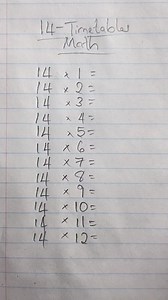 14-Timetables
Math
14 × 1 =
14 × 2 =
14 × 3 =
14 × 4 =
14 × 5 =
14 × 6 =
14 × 7 =
14 × 8 =
14 × 9 =
14 × 10 =
14 × 11 =
14 × 12 =